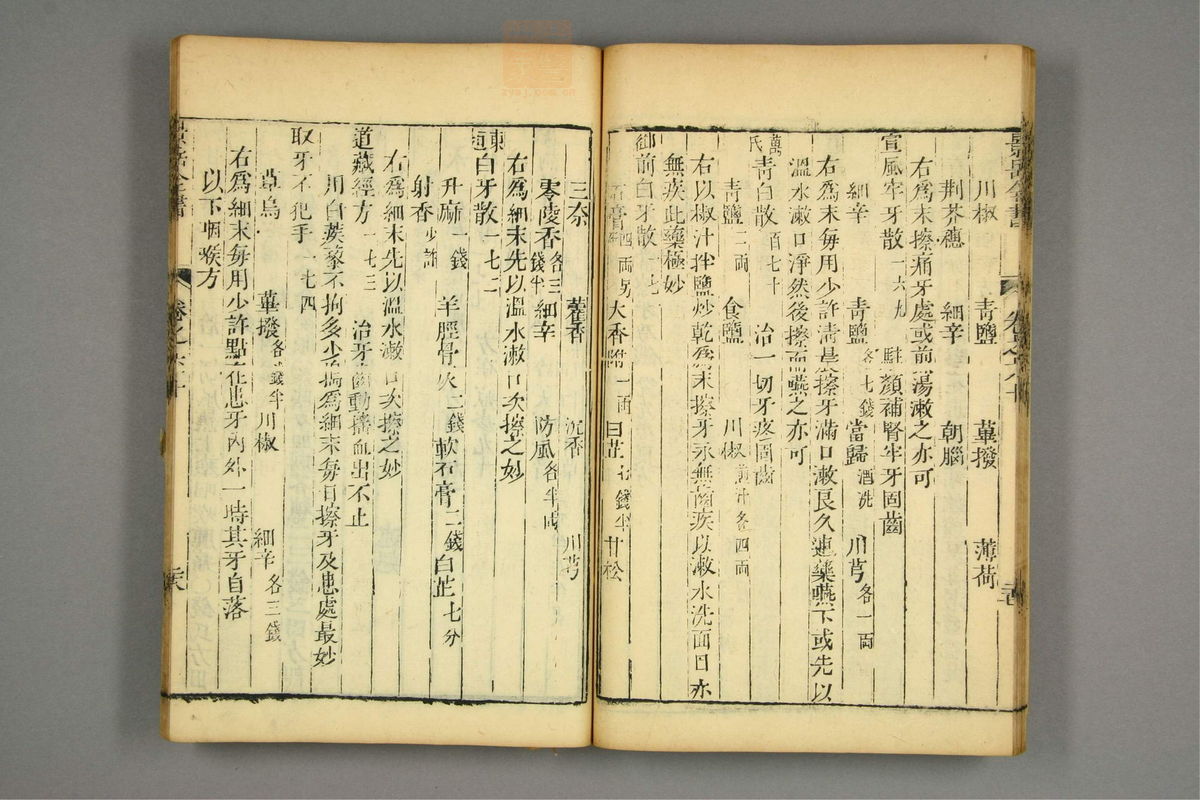 川椒 青鹽 蓽撥 薄荷
荆芥穗 細辛 朝腦
右爲末擦痛牙處或煎湯漱之亦可
宣風牢牙散一六九 駐顏補腎牢牙固齒
細辛 青鹽各七錢 當歸酒洗 川芎各一兩
右爲末每用少許清晨擦牙滿口漱良久連藥嚥下或先以
溫水漱口淨然後擦而嚥之亦可
萬氏青白散百七十 治一切牙疼固齒
青鹽二兩 食鹽 川椒煎汁各四兩
右以椒汁拌鹽炒乾爲末擦牙永無齒疾以漱水洗面目亦
無疾此藥極妙
御前白牙散一七
石膏四兩另研 大香附一兩 白芷七錢半 甘松
三柰 藿香 沉香 川芎
零陵香各三錢半 細辛 防風各半兩
右爲細末先以溫水漱口次擦之妙
東垣白牙散一七二
升麻一錢 羊脛骨灰二錢 軟石膏二錢 白芷七分
射香少許
右爲細末先以溫水漱口次擦之妙
道藏經方一七三 治牙齒動搖血出不止
用白蒺藜不拘多少爲細末每日擦牙及患處最妙
取牙不犯手一七四
草烏 蓽撥各錢半 川椒 細辛各三錢
右爲細末每用少許點在患牙內外一時其牙自落
以下咽喉方
景岳全書
卷之六十